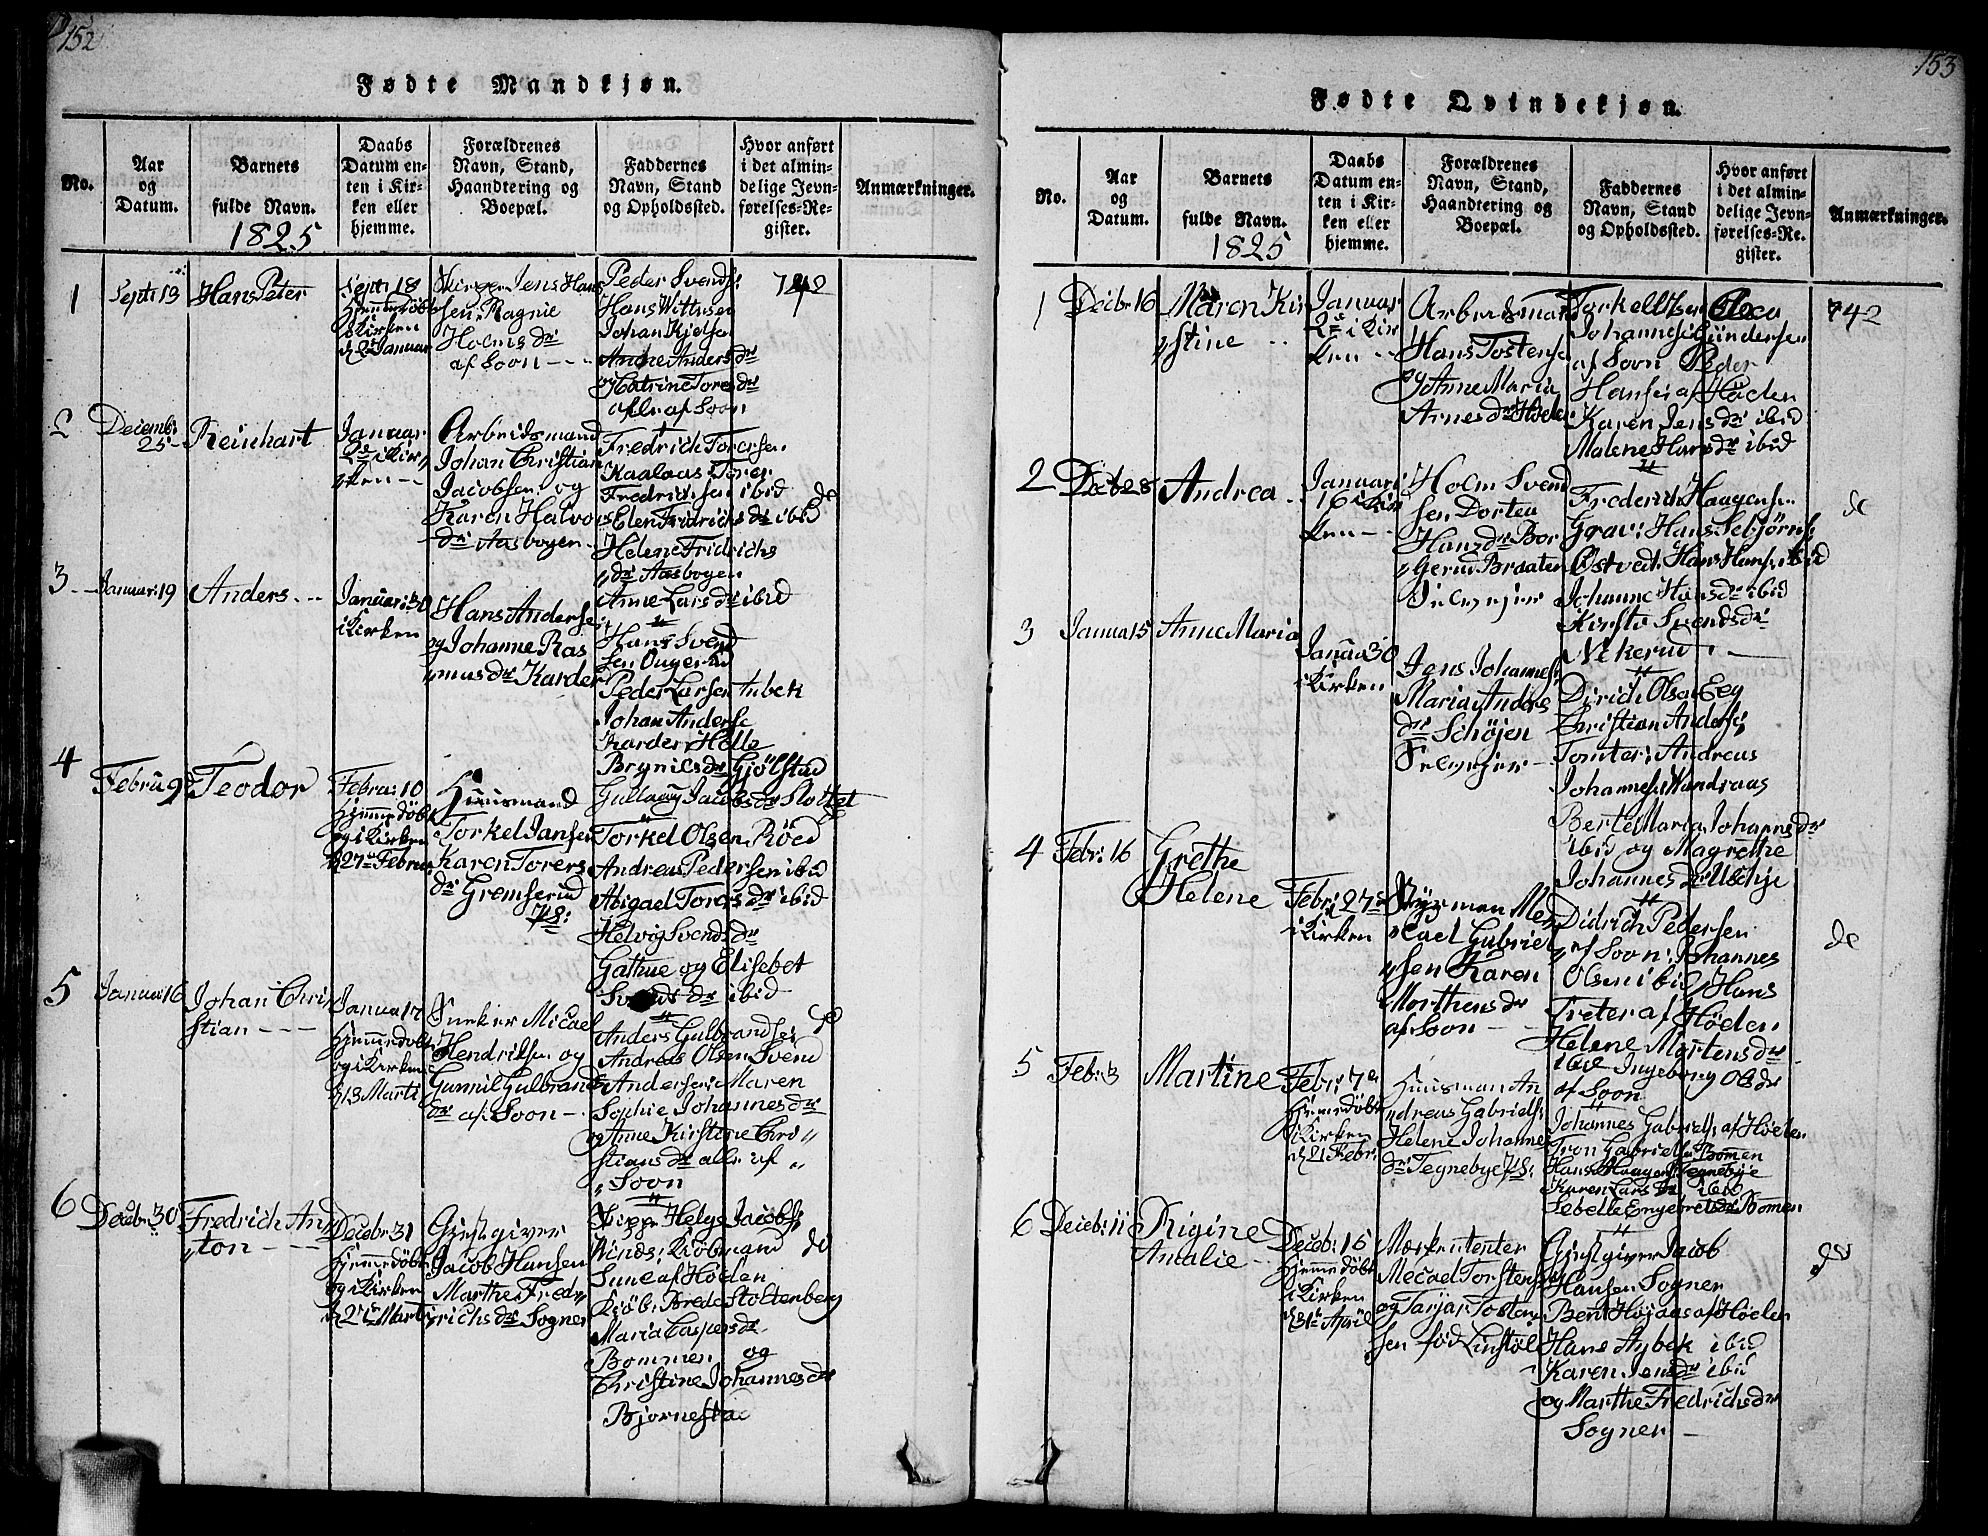 152
Fødte Mandkjøn.
No.
Aar
og
Datum.
Barnets
fulde Navn.
1825
Daabs
Datum en-
ten i Kir-
ken eller
hjemme.
Forældrenes
Navn, Stand,
Haandtering og
Boepæl.
Faddernes
Navn, Stand
og Opholdssted.
Hvor anført
i det almin-
delige Jevn-
førelses-Re-
gister.
Anmærkninger.
1
Septr 13
Hans Peter
Septr 18
Hjemmedøbt
i Kirken
d 2 Januar
Jens Han
sen Ragnie
Holms dr
af Soon
Peder Svends:
Hans Wittusen
Johan Kjelsen
Andre Anders dr
og Catrine Tores dr
alle af Soon
742
2
Decemb:
25
Reinhart
Januar
2 i Kir
ken
Arbeidsmand
Johan Christian
Jacobsen og
Karen Halvors
dr Aasbogen
Fredrich Torersen
Fredrichsen ibid
Elen Fridrichs dr ibid
Helene Fridrichs
dr Aasbogen
Anne Lars dr ibid
do
3
Januar: 19
Anders
Januar: 30
i Kirken
Hans Anderse
og Johanne Ras
mus dr Karder
Hans Svend
sen Ougerud
Peder Larsen Anbek
Johan Anderse
Karder Helle
Brynils dr Gjølstad
Jacobs dr Slottet
4
Febru 9
Teodor
Febru: 10
Hjemmedøbt
og i Kirken
d 27 Februa
Huusmand
Torkel Jansen
Karen Torers
dr Gremserud
Torkel Olsen Røed
Andreas Pedersen ibid
Abigael Tores dr ibid
Helvig Svends dr
Gathue og Elisebet
Svends dr ibid
do
5
Janua 16
Johan Chri
stian
Janua 17
Hjemmedøbt
og i Kirken
d 13 Marti
Micael
Hendriksen og
Gunnil Gulbrands
dr af Soon
Anders Gulbrandsen
Andreas Olsen Svend
Andersen: Maren
Sophie Johannes dr
og Anne Kirstine Chri
stians dr alle af
Soon
do
6
Decebr: 30
Fredrich An
ton
Decebr 31
Hjemmedøbt
og i Kirken
d 27 Marti
Gjestgiver
Jacob Hansen
Marthe Fred
richs dr Sogner
Skipp: Helge Jacobs:
Kiøbmand
Sune af Høelen
Kiøb: Brede Stoltenberg
Maria Caspers dr
Bommen og
Christine Johannes dr
Bjørnestad
do
153
Fødte Qvindekjøn.
No.
Aar
og
Datum.
Barnets
fulde Navn.
1825
Daabs
Datum en-
ten i Kir-
ken eller
hjemme.
Forældrenes
Navn, Stand,
Haandtering og
Boepæl.
Faddernes
Navn, Stand
og Opholdssted.
Hvor anført
i det almin-
delige Jevn-
førelses-Re-
gister.
Anmærkninger.
1
Decbr 16
Maren Kir
stine
Januar
2 i Kir
ken
Arbeidsmand
Hans Tostense
og Anne Maria
Arnes dr Høelen
Torkell Olsen
Johannes Gundersen
af Soon Peder
Hansen af Høelen
Karen Jens dr ibid
Malene Hans dr ibid
742
2
Decbr 28
Andrea
Januari
16 i Kir
ken
Holm Svend
sen Dortea
Hans dr Bor
gerud Braaten
Frederich Haagensen
Grav: Hans Sebjørns:
Østved: Hans Hansen ibid
Johanne Hans dr ibid
Kirsto Svends dr
Nikerud
do
3
Janua 15
Anne Maria
Janua 30
i Kirken
Jens Johannes:
Maria Anders
dr Schøjen
Dirich Olsen Eeg
Christian Anders:
Tomter: Andreas
Johannes: Mandraas
Berte Maria Johans dr
ibid og Magrethe
Johannes dr
4
Febr: 16
Grethe
Helene
Febr: 27
i Kirken
Styrman Me
cael Gabriel
sen Karen
Morthens dr
af Soon
Didrich Pedersen
af Soon: Johannes
Olsen ibid Hans
Treter af Høelen
Helene Mortens dr
ibid Ingeborg Ols dr
af Soon
do
5
Feb: 3
Martine
Febr: 7
Hjemmedøbt
i Kirken
d 21 Febr:
Huusman An
dreas Gabriels:
Helene Johannes
dr Tegnebye
Johannes Gabriels: af Høelen
Tron Gabriels: Bomen
Hans Haagens: Tegnebye
Karen Lars dr ibid
Sebelle Engebrets dr Bomen
6
Decebr: 11
Rigine
Amalie
Decbr: 16
Hjemmedøbt
i Kirken
d 31 April
Markententer
Mecael Torstens
og Tarjar Tostens
sen fød Linstøl
Gjestgiver Jacob
Hansen Sogner
Bent Højaas af Høelen
Hans Aybek ibid
Karen Jens dr ibid
og Marthe Fredrichs dr
Sogner
do